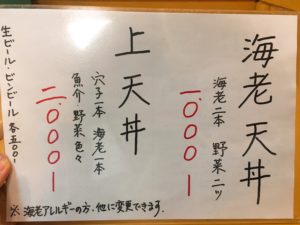 海老天丼
海老二本 野菜二ッ
一〇〇〇ー
上天丼
穴子一本 海老一本
魚介・野菜色々
二.〇〇〇ー
生ビール・ビンビール 各五〇〇ー
※海老アレルギーの方、他に変更できます。